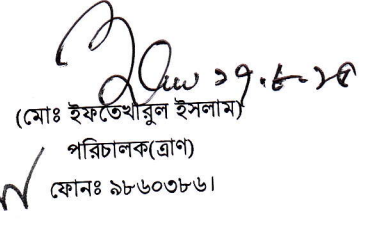 (মোঃ ইফতেখারুল ইসলাম)
পরিচালক(ত্রাণ)
ফোনঃ ৯৮৬০৩৮৬।